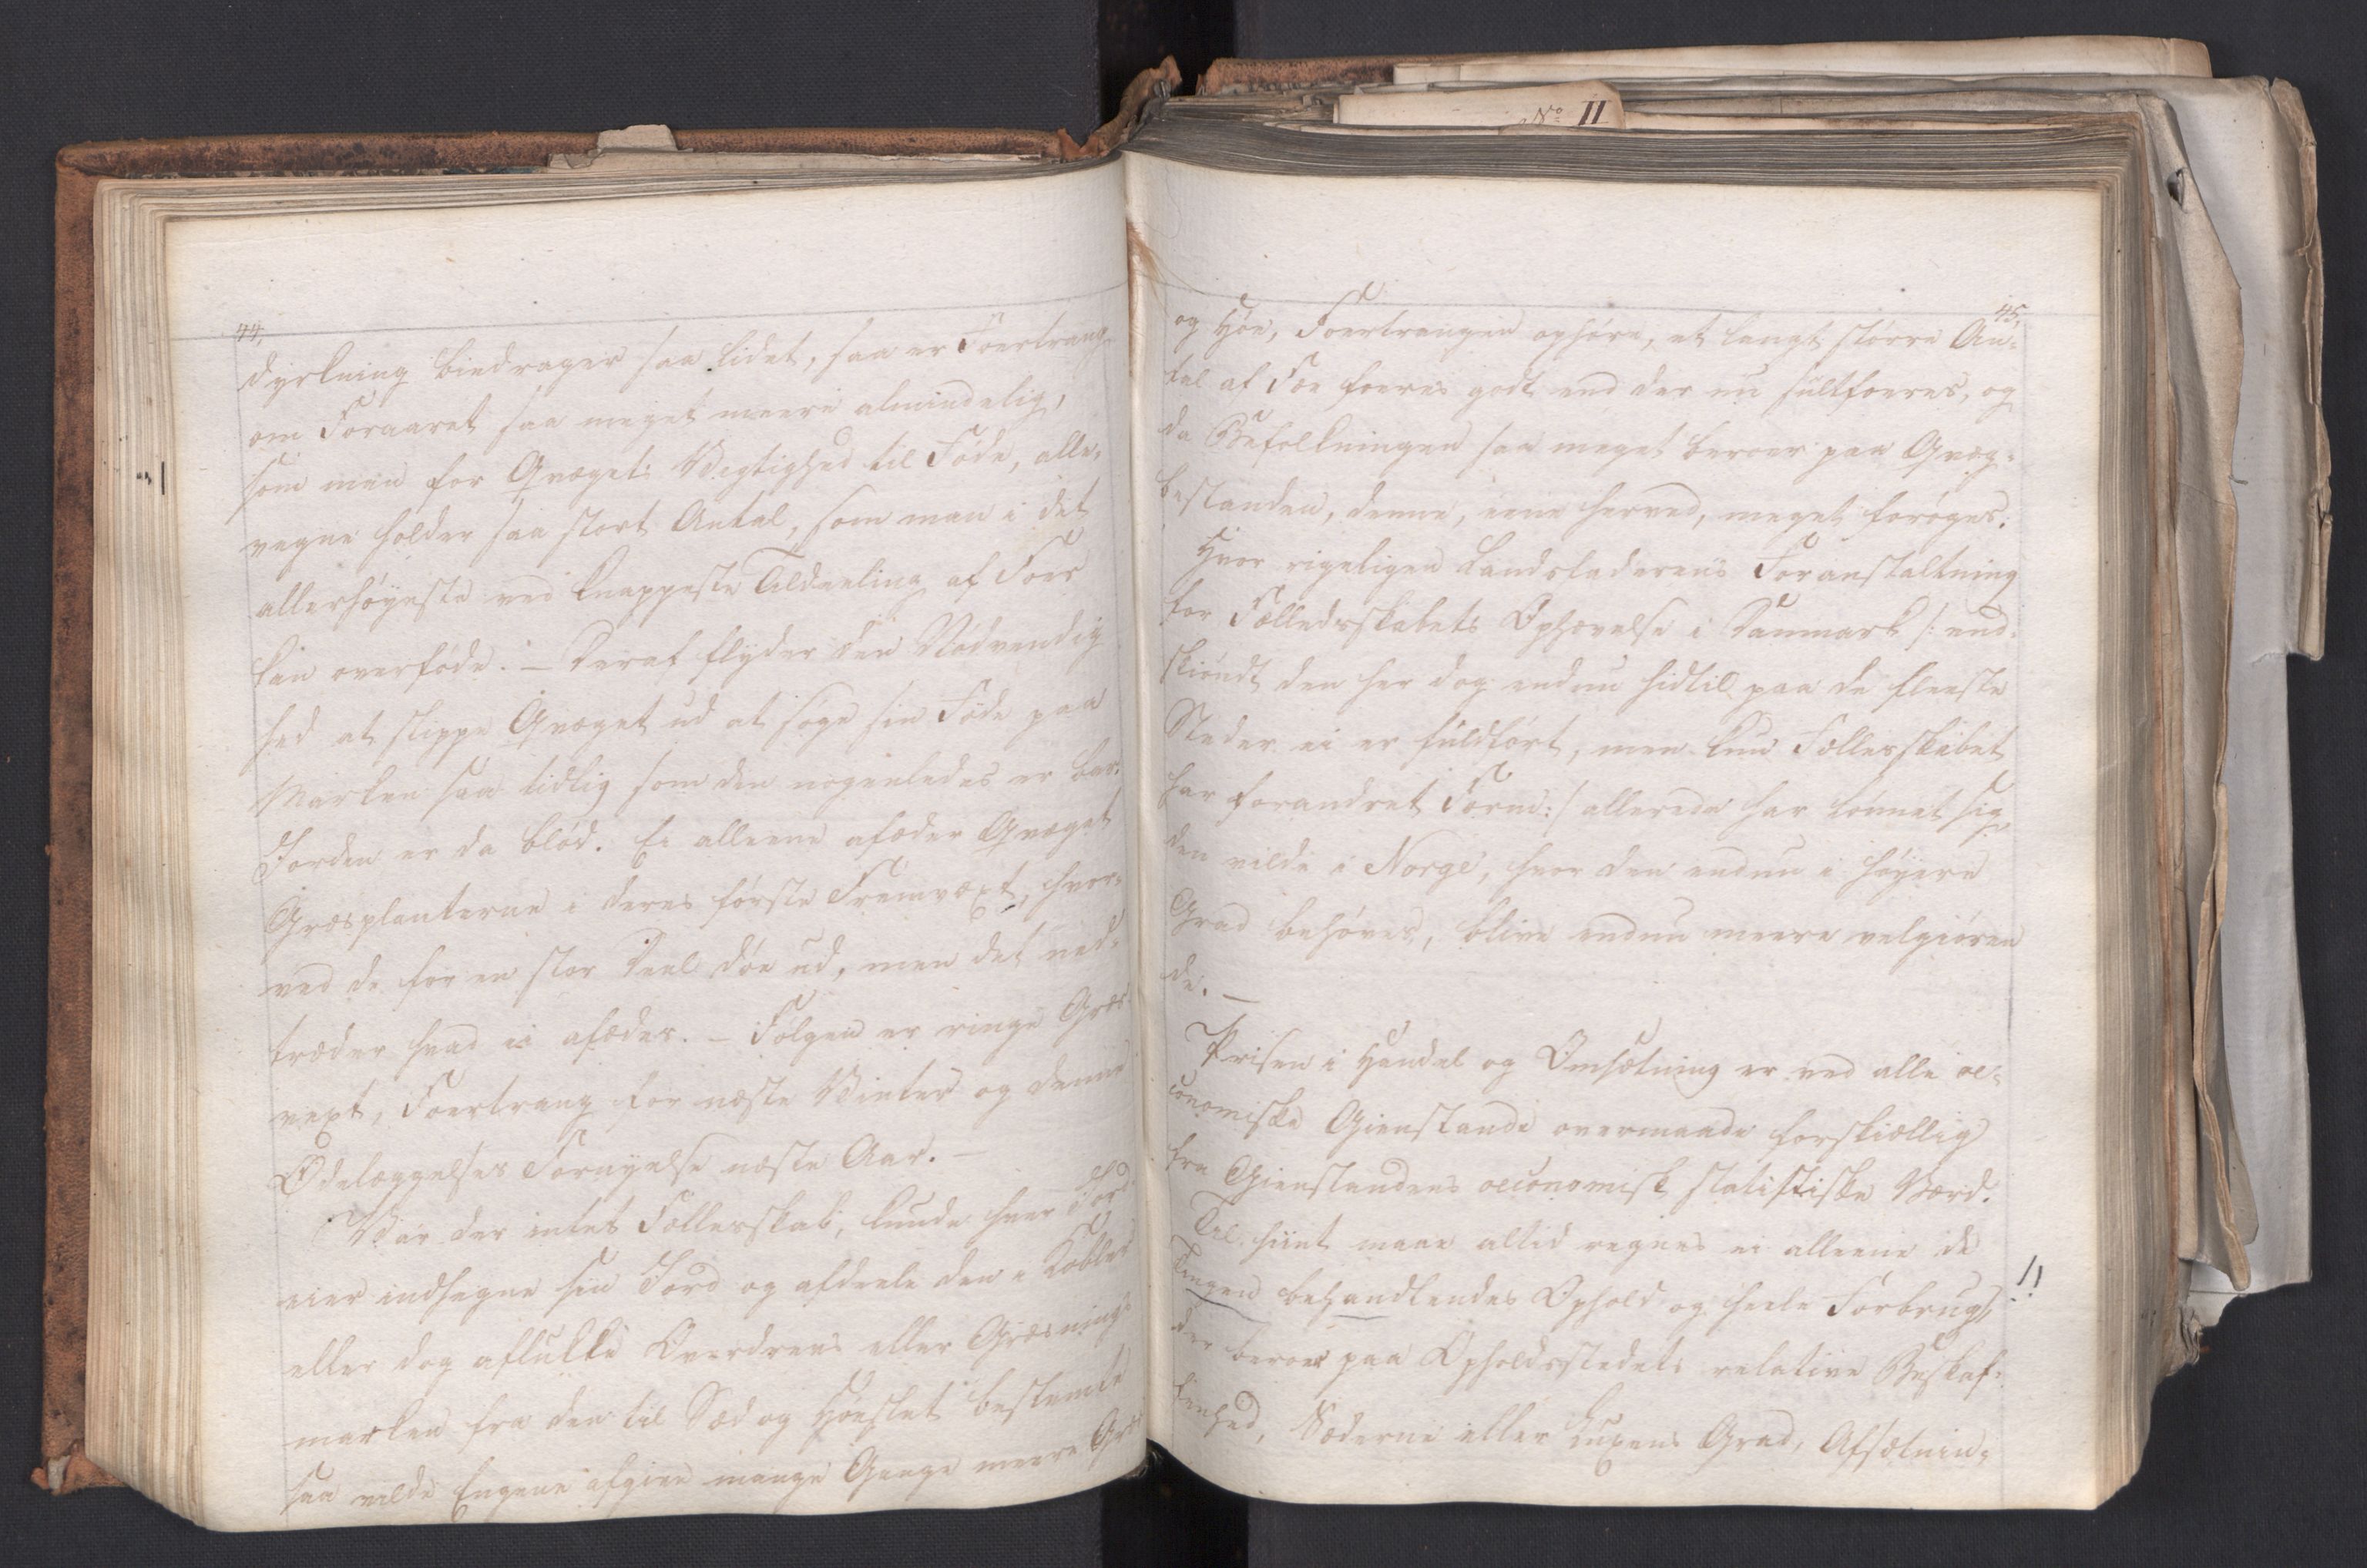 No II
44.
dyrkning biedrager saa lidet, saa er Foertrang
om Foraaret saa meget meere almindelig,
som man for Qvægets Vegtighed til Føde, alle,
vegne holder saa stort Antal, som man i det
allerhøyeste ved knappeste Tildeeling af Foer
kan overføde. — Deraf flyder den Nødvendig
hed at slippe Qvæget ud at søge sin Føde paa
Marken saa tidlig som den nogenledes er bar.
Jorden er da blød. Ei alleene afæder Qvæget
Græsplanterne i deres første Fremvæxt, hvor-
ved de for en stor Deel døe ud, men det ned-
træder hvad ei afædes. — Følgen er ringe Græs
vext, Foertrang for næste Vinter og denne
Ødelæggelses Fornyelse næste Aar. —
Var der intet Fællesskab, kunde hver Jord
eier indhegne sin Jord og afdeele den i Kobler
eller dog aflukke Overdrevs eller Græsnings-
marken fra den til Sæd og Høeslet bestemte
saa vilde Engene afgive mange Gange meere Græs
45.
og Høe, Foertrangen ophøre, et langt større An-
tal af Fæe foeres godt end der nu sultfoeres, og
da Befolkningen saa meget beroer paa Qvæg-
bestanden, denne, eene herved, meget forøges.
Hvor rigeligen Landsfaderens Foranstaltning
for Fælledsskabets Ophævelse i Danmark /: end-
skiøndt den her dog endnu hidtil paa de fleeste
Steder ei er fuldført, men kun Fællesskabet
har forandret Form :/ allerede har lønnet sig
den vilde i Norge, hvor den endnu i høyere
Grad behøves, blive endnu meere velgiøren
de. —
Prisen i Handel og Omsætning er ved alle oe-
conomiske Gienstande overmaade forskiellig
fra Gienstandens oeconomisk statistiske Værd.
Til hiint maae altid regnes ei alleene de
Tingen behandlendes Ophold og heele Forbrug,
der beroer paa Opholdsstedets relative Beskaf-
fenhed, Sæderne eller Luxens Grad, Afsætnin-